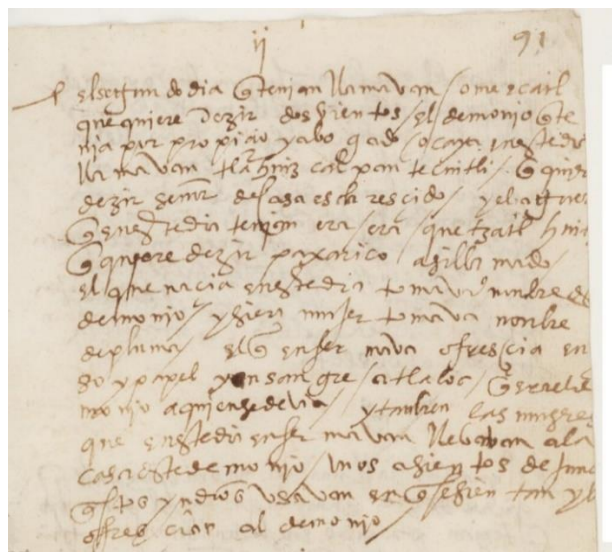 ij 91
el segundo dia q tenian llamavan / ome ecatl
que quiere dezir dos vientos / el demonio q te
nia por propicio y abogado / o cara
llamavan tlahuiz calpan tecuitli / q quiere
dezir señor de la casa esclarescido / y el aguero
q en este dia tenian era / era / quetzatl huiz
q quiere dezir paxarico asi llamado /
el que nacia en este dia tomava nonbre de
demonio / y si era muger tomava nonbre
de pluma / el q enfermava ofrescia en
so y papel y en sangre / a tlaloc / q era el de
monio a quien se devia / y tambien las mugeres
que en este dia enfermavan llevavan a la
casa deste demonio / unos asientos de
q estos yndios usavan en q se sientan y
ofrescian al demonio /